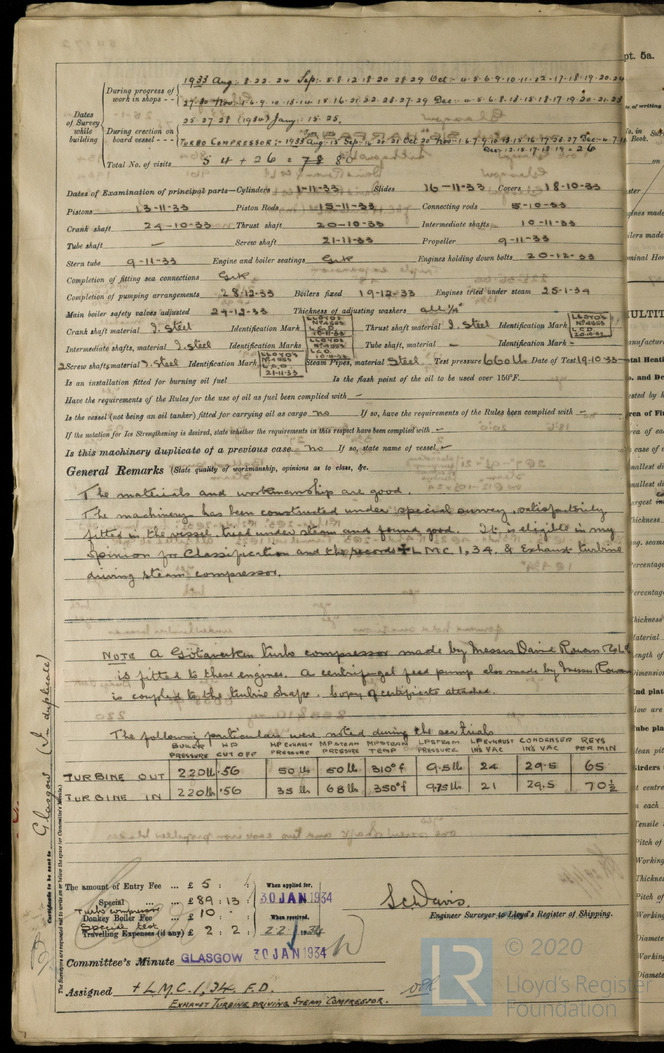 Dates of Survey while building
During progress of work in shops - -
1933 Aug:- 8. 22. 24 Sep:- 5. 8. 12. 18. 20 28 29 Oct:- 4. 5. 6. 9. 10. 11. 12. 17. 18. 19. 20. 24
27. 30 Nov 1. 6. 9. 10. 13. 14 15. 16. 21. 22. 28. 27. 29 Dec:- 4. 5. 6. 8. 13. 15. 18. 17 19. 20. 21. 23
During erection on board vessel - - -
25. 27. 28 (1934) Jany: 15. 25.
TURBO COMPRESSOR:- 1933 Aug.
Total No. of visits 54 + 26 = 80
Dates of Examination of principal parts—Cylinders 1-11-33 Slides 16-11-33 Covers 18-10-33
Pistons 13-11-33 Piston Rods 15-11-33 Connecting rods 5-10-33
Crank shaft 24-10-33 Thrust shaft 20-10-33 Intermediate shafts 10-11-33
Tube shaft - Screw shaft 21-11-33 Propeller 9-11-33
Stern tube 9-11-33 Engine and boiler seatings Engines holding down bolts 20-12-33
Completion of fitting sea connections
Completion of pumping arrangements 28-12-33 Boilers fixed 19-12-33 Engines tried under steam 25-1-34
Main boiler safety valves adjusted 29-12-33 Thickness of adjusting washers all
Crank shaft material I. Steel Identification Mark LLOYDS No 4363 L.C.D. Thrust shaft material I. Steel Identification Mark LLOYDS L.C.D.
Intermediate shafts, material I. Steel Identification Marks LLOYDS L.C.D. Tube shaft, material - Identification Mark -
2 Screw shafts material I. Steel Identification Mark LLOYDS 21-11-33 Steam Pipes, material Steel Test pressure 660 lb Date of Test 19-10-33
Is an installation fitted for burning oil fuel Is the flash point of the oil to be used over 150°F.
Have the requirements of the Rules for the use of oil as fuel been complied with -
Is the vessel (not being an oil tanker) fitted for carrying oil as cargo no If so, have the requirements of the Rules been complied with -
If the notation for Ice Strengthening is desired, state whether the requirements in this respect have been complied with -
Is this machinery duplicate of a previous case no If so, state name of vessel
General Remarks (State quality of workmanship, opinions as to class, &c.
The materials and workmanship are good.
The machinery has been constructed under special survey, satisfactorily
fitted in the vessel, tried under steam and found good. It is eligible in my
opinion for Classification and the records + L M C 1, 34. & Exhaust turbine
driving steam compressor.
NOTE A Götaverken turbo compressor made by Messrs David Rowan & Co Ltd
is fitted to these engines. A centrifugal feed pump also made by Messrs Rowan
is coupled to the turbine shaft. Copy of certificate attached.
The following particulars were noted during the sea trials
BOILER PRESSURE HP CUT OFF HP EXHAUST PRESSURE MP STEAM PRESSURE MP STEAM TEMP LP STEAM PRESSURE LP EXHAUST INS VAC CONDENSER INS VAC REVS PER MIN
TURBINE OUT 220 lb .56 50 lb 50 lb 310° f 9.5 lb 24 29.5 65
TURBINE IN 220 lb .56 35 lb 68 lb 350° f 9.75 lb 21 29.5 70½
Certificate to be sent to Glasgow (In duplicate)
(The Surveyors are requested not to write on or below the space for Committee's Minute.)
The amount of Entry Fee ... £ 5 : : When applied for,
Special ... £ 89 : 13 : 30 JAN 1934
Turbo compressor Donkey Boiler Fee ... £ 10 : : When received,
Special test Travelling Expenses (if any) £ 2 : 2 : 22 1934
S. C. Davis.
Engineer Surveyor to Lloyd's Register of Shipping.
Committee's Minute GLASGOW 30 JAN 1934
Assigned + L.M.C. 1, 34. F.D.
EXHAUST TURBINE DRIVING STEAM COMPRESSOR.
pt. 5a.
LR © 2020
Lloyd's Register
Foundation